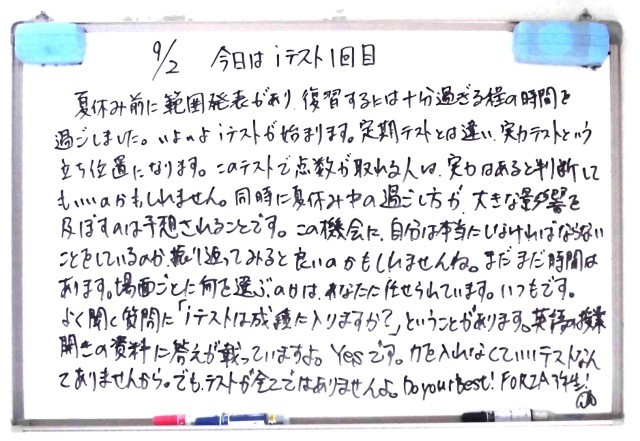 9/2 今日はiテスト1回目
夏休み前に範囲発表があり、復習するには十分過ぎる程の時間を
過ごしました。いよいよiテストが始まります。定期テストとは違い、実力テストという
立ち位置になります。このテストで点数が取れる人は、実力はあると判断して
もいいのかもしれません。同時に夏休み中の過ごし方が、大きな影響を
及ぼすのは予想されることです。この機会に、自分は本当にしなければならない
ことをしているのか、振り返ってみると良いのかもしれませんね。まだまだ時間は
あります。場面ごとに何を選ぶのかは、あなたに任せられています。いつもです。
よく聞く質問に「iテストは成績に入りますか?」ということがあります。英語の授業
開きの資料に答えが載っていますよ。Yesです。力を入れなくていいテストなん
てありませんから。でも、テストが全てではありませんよ。Do your Best! FORZA 3年生!